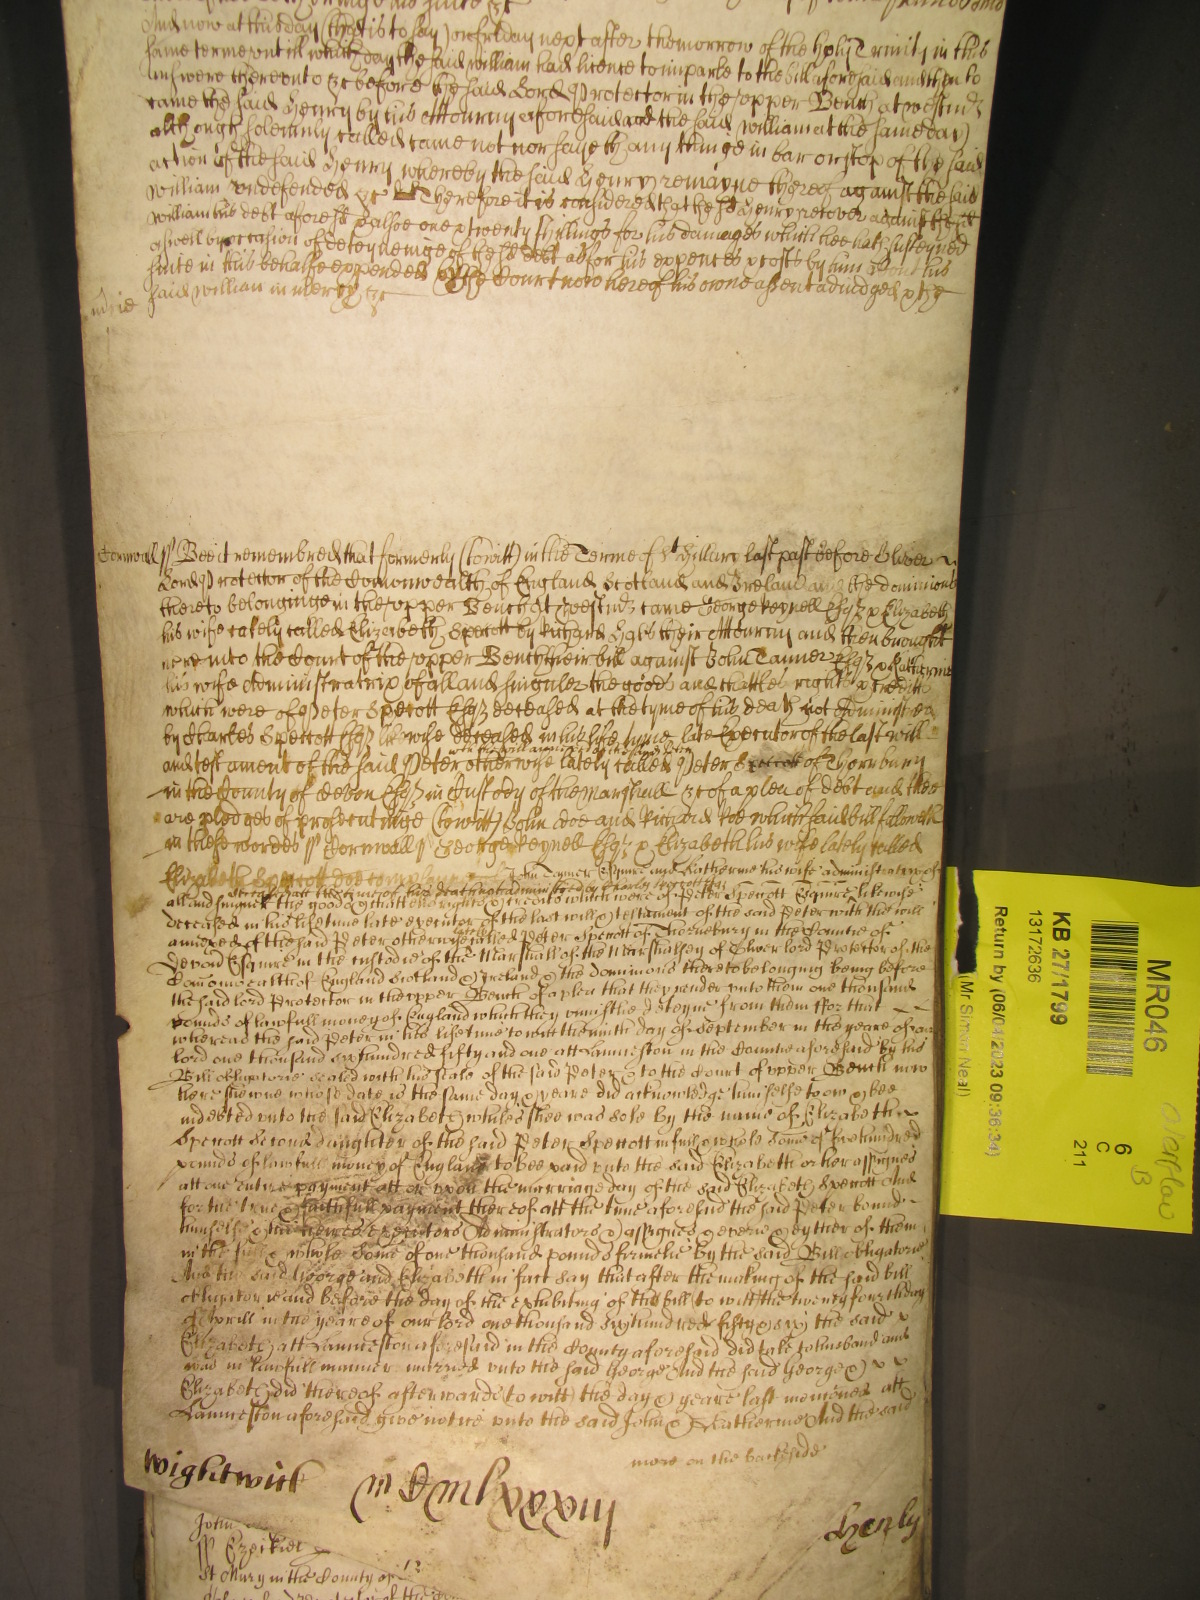 And now at this day (that is to say) on friday next after the morrow of the holy Trinity in this
same terme untill which day the said William had licence to imparle to the bill aforesaid and then to
answere thereunto &c before the said Lord Protector in the upper Bench at Westmr
came the said Henry by his Attourny aforesaid and the said William at the same day
although solemnly called came not nor sayeth any thinge in bar or stop of the said
action of the said Henry whereby the said Henry remayne thereof against the said
William undefended &c Therefore it is considered that the sd Henry recover against the sd
William his debt aforesd & alsoe one & twenty shillings for his damages which hee hath susteyned
aswell by occasion of deteyneinge of the sd debt as for his expences & costs by him about his
suite in this behalfe expended by the Court now here of his owne assent adiudged & the
said William in mercy &c
Cornwall ss Bee it remembred that formerly (to witt) in the Terme of St Hillary last past before Oliver
Lord Protector of the Comonwealth of England Scotland and Ireland and the dominions
thereto belonginge in the upper Bench at Westmr came George Keynell Esqr & Elizabeth
his wife lately called Elizabeth Specott by Richard their Attourny and then brought
here into the Court of the upper Bench their bill against John Tanner Esqr & Katherine
his wife Administratrix of all and singuler the goods and chattles rights & creditts
which were of Peter Specott Esqr deceased at the tyme of his death not administred
by Charles Specott Esqr likewise deceased in his life tyme late Executor of the last will
and testament of the said Peter otherwise lately called Peter Specott of Thornbury
in the County of Devon Esqr in Custody of the Marshall &c of a plea of debt and there
are pledges of prosecutinge (to witt) John Doe and Richard Roe which said bill followeth
in these wordes ss Cornwall ss George Keynell Esqr & Elizabeth his wife lately called
Elizabeth Specott doe complayne John Tanner Esquire and Katherine his wife administratrix of
all and singuler the goods & chattells rights & creditts which were of Peter Specott Esquire likewise
deceased in his lifetime late executor of the last will & testament of the said Peter with the will
annexed of the said Peter otherwise lately called Peter Specott of Thornebury in the Countie of
Devon Esquire in the custodie of the Marshall of the Marshalsey of Oliver lord Protector of the
Commonwealth of England Scotland & Ireland & the dominions thereto belonging being before
the said lord Protector in the upper Bench of a plea that they render unto them one thousand
pounds of lawfull money of England which they uniustlie deteyne from them ffor that
whereas the said Peter in his lifetime to witt the ninth day of September in the yeare of our
lord one thousand six hundred fifty and one att Lanneston in the Countie aforesaid by his
Bill obligatorie sealed with the seale of the said Peter & to the Court of upper Bench now
here shewne whose date is the same day & yeare did acknowledge himselfe to ow & bee
indebted unto the said Elizabeth whiles shee was sole by the name of Elizabeth
Specott second daughter of the said Peter Specott in full & whole some of five hundred
pounds of lawfull money of England to bee paid unto the said Elizabeth or her assignes
att one entire payment att or upon the marriage day of the said Elizabeth Specott And
for the true & faithfull payment thereof att the time aforesaid the said Peter bound
himselfe & his heires executors Administrators & assignes & everie & eyther of them
in the full & whole some of one thousand pounds firmelie by the said Bill obligatorie
And the said George and Elizabeth in fact say that after the making of the said bill
obligatorie and before the day of the exhibiting of this bill to witt the twenty fourth day
of Aprill in the yeare of our Lord one thousand six hundred fifty & six the said
Elizabeth att Lanneston aforesaid in the County aforesaid did take to husband and
was in lawfull manner married unto the said George And the said George &
Elizabeth did thereof afterwards to witt the day & yeare last mencioned att
Lanneston aforesaid give notice unto the said John & Katherine And the said
more on the backside
Wightwick
Henly
John
ss Ezekiel
St Mary in the County of
MR046
6
B
C
211
KB 27/1799
13172636
Return by (06/04/2023 09:36:34)
(Mr Simon Neal)